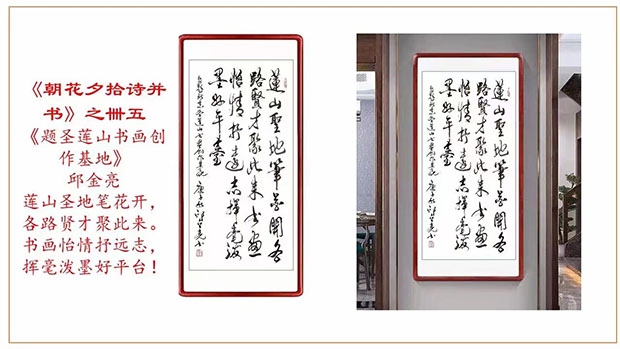 《朝花夕拾诗并
书》之卌五
《题圣莲山书画创
作基地》
邱金亮
莲山圣地笔花开，
各路贤才聚此来。
书画怡情抒远志，
挥毫泼墨好平台！
莲山聖地筆花開各
路賢才聚此来书画
怡情抒遠志挥毫泼
墨好平臺
莲山聖地筆花開各
路賢才聚此来书画
怡情抒遠志挥毫泼
墨好平臺